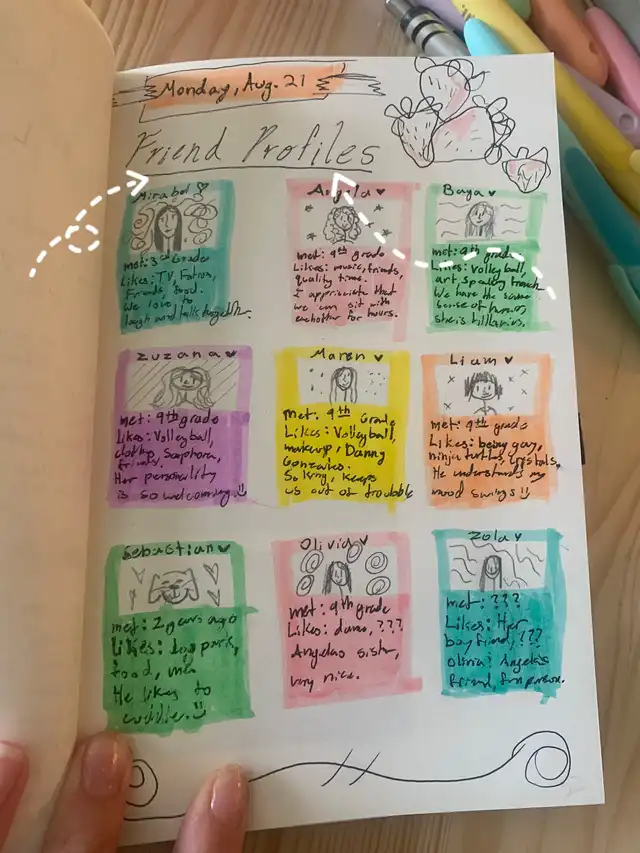 Monday, Aug. 21
Friend Profiles
Mirabel
met: 3rd Grade
Likes: TV,
Friends, food.
We love to
laugh and talk together.
Angela
met: 9th grade
Likes: music, friends,
quality time.
I appriciate that
we can sit with
eachother for hours.
Baya
met: 9th grade
Likes: Volleyball,
art, speaking french
We have the same
sense of humor,
she's hillarius.
Zuzana
met: 9th grade
Likes: Volleyball,
clothing, Saphora,
friends,
Her personality
is so welcoming.
Maren
met: 9th Grade
Likes: Volleyball,
makeup, Danny
Gonzales.
So King, keeps
us out of troubble
Liam
met: 9th grade
Likes: being gay,
ninja turtles, crystals,
He understands my
mood swings
Sebastian
met: 2 years ago
Likes: dog park,
food, me.
He likes to
cuddle.
Olivia
met: 9th grade
Likes: ???
Angelas sister,
very nice.
Zola
met: ???
Likes: Her
boyfriend, ???
Olivia; Angela's
friend, fun person.